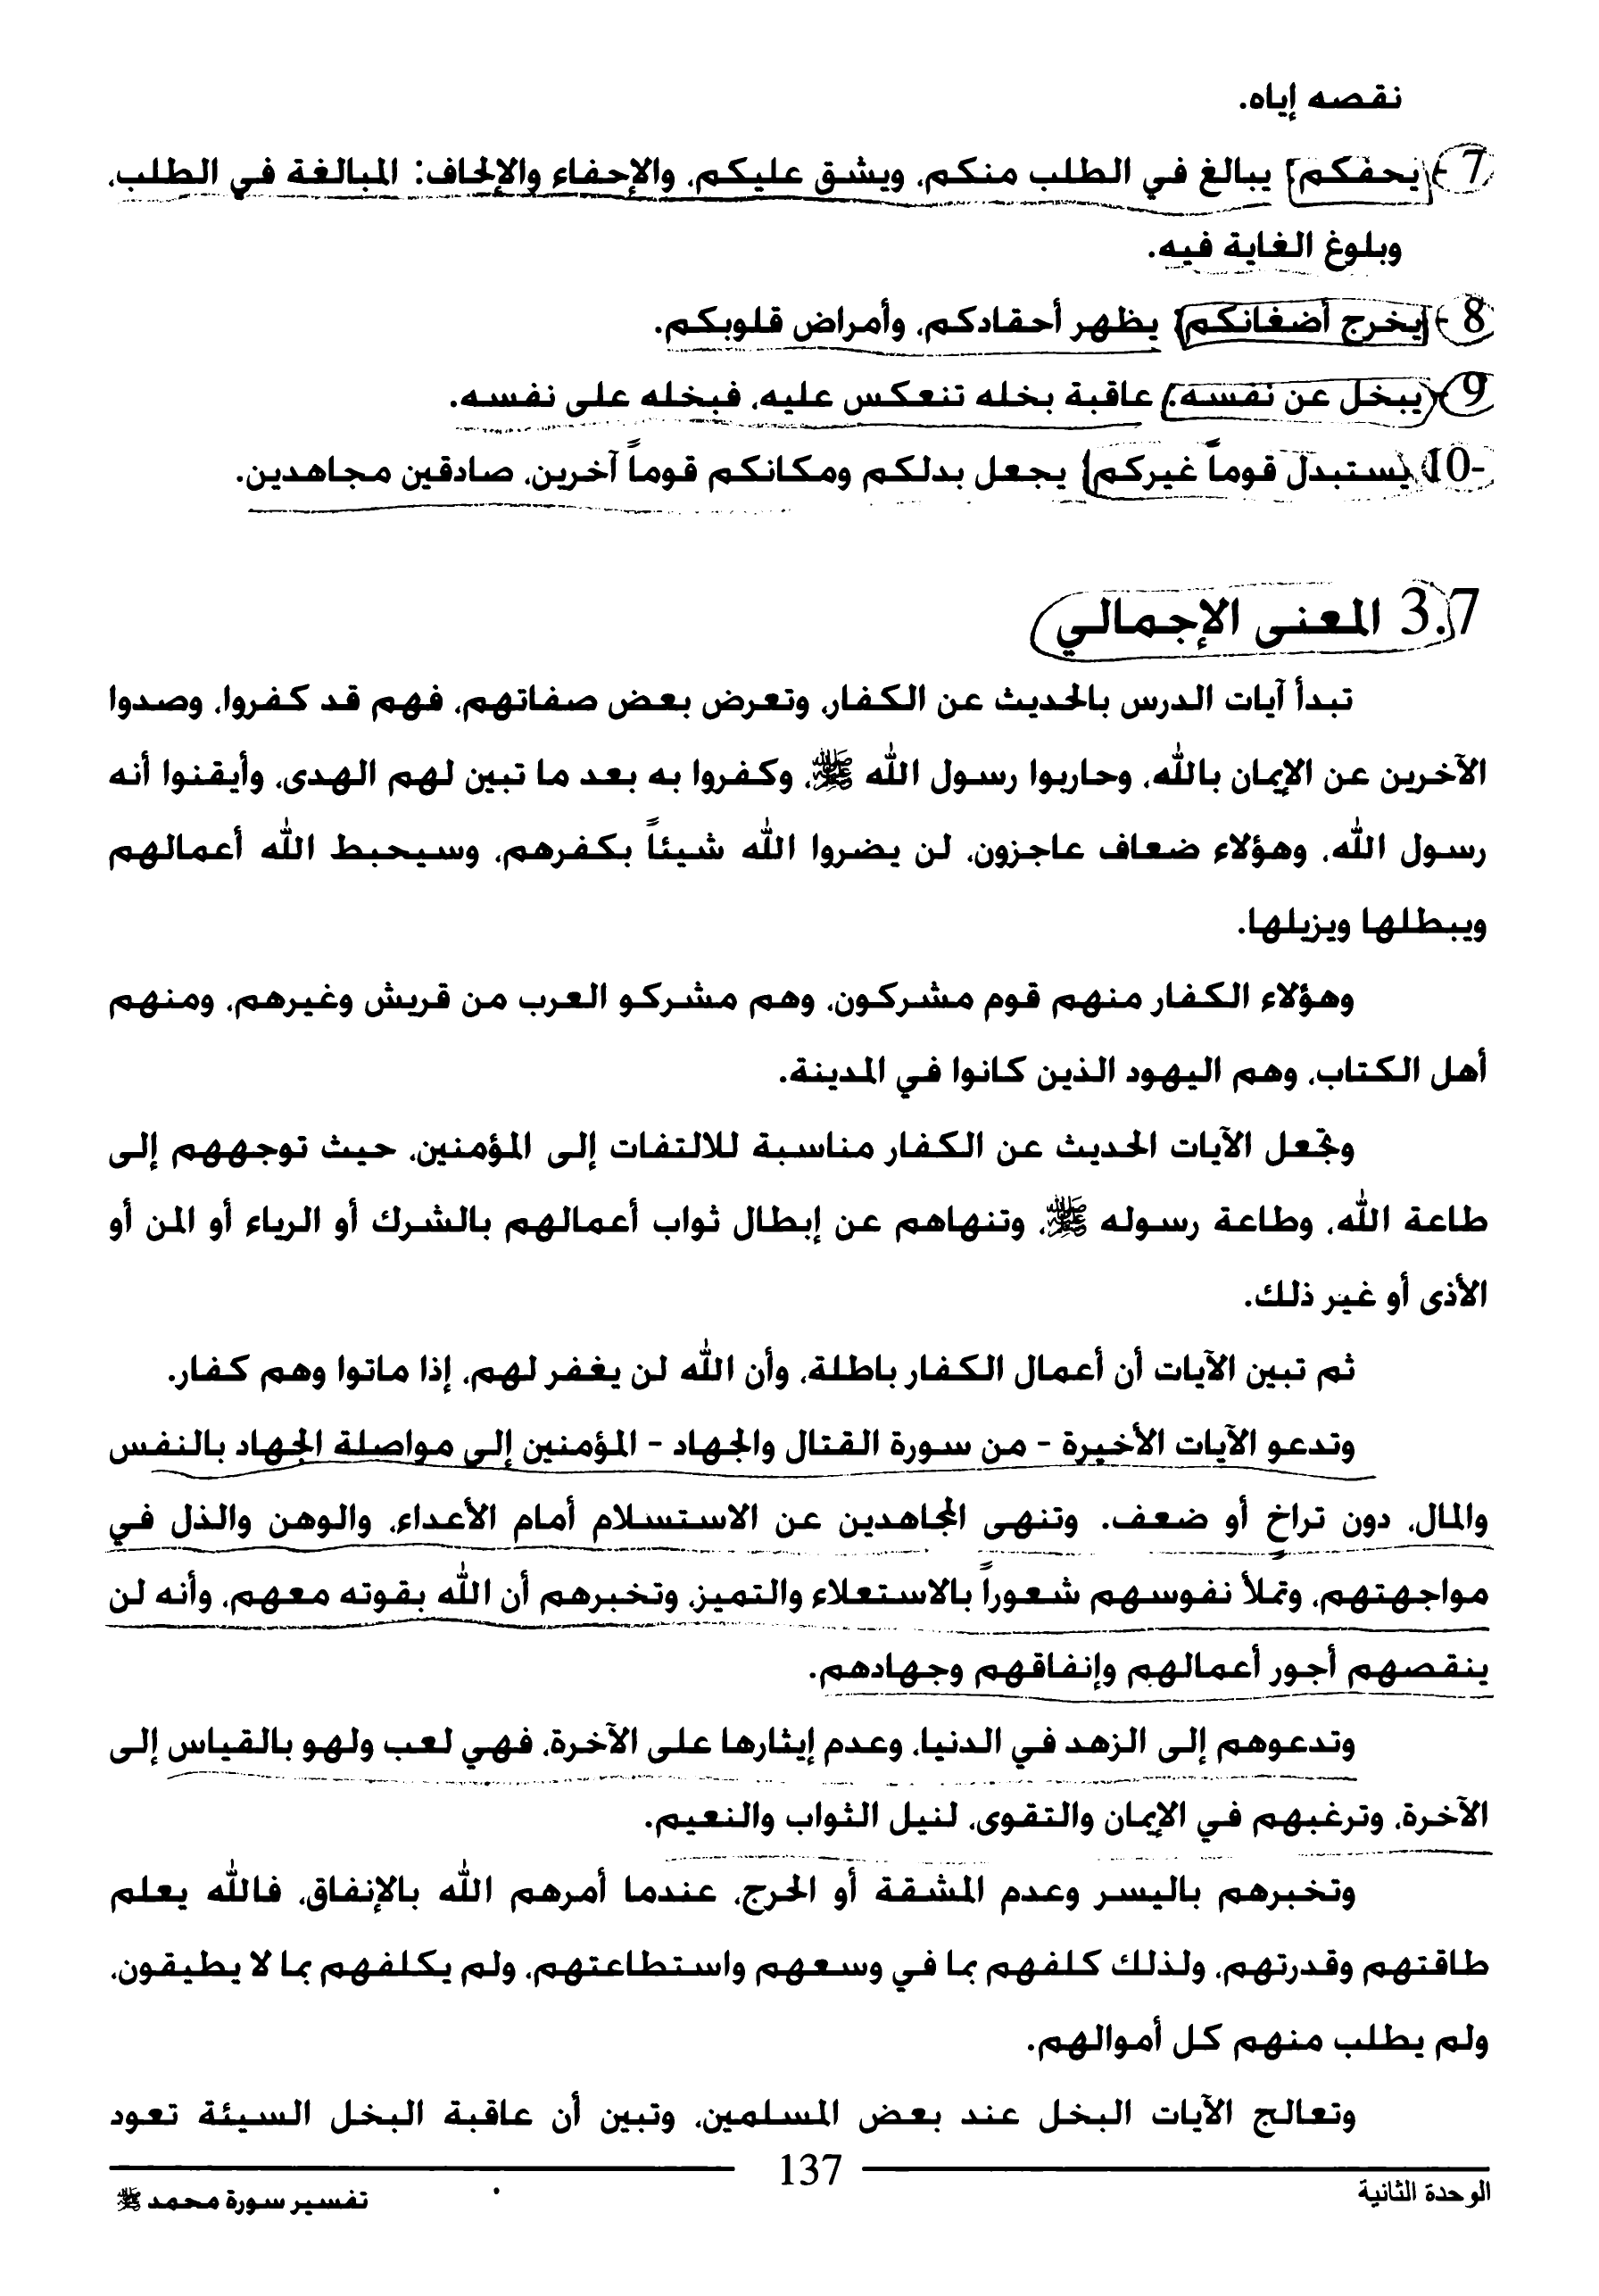 نقصه إياه.
7- {يحفكم} يبالغ في الطلب منكم، ويشق عليكم، والإحفاء والإلحاف: المبالغة في الطلب،
وبلوغ الغاية فيه.
8- {يخرج أضغانكم} يظهر أحقادكم، وأمراض قلوبكم.
9- {يبخل عن نفسه} عاقبة بخله تنعكس عليه، فبخله على نفسه.
10- {يستبدل قوماً غيركم} يجعل بدلكم ومكانكم قوماً آخرين، صادقين مجاهدين.
3.7 المعنى الإجمالي
تبدأ آيات الدرس بالحديث عن الكفار، وتعرض بعض صفاتهم، فهم قد كفروا، وصدوا
الآخرين عن الإيمان بالله، وحاربوا رسول الله ﷺ، وكفروا به بعد ما تبين لهم الهدى، وأيقنوا أنه
رسول الله، وهؤلاء ضعاف عاجزون، لن يضروا الله شيئاً بكفرهم، وسيحبط الله أعمالهم
ويبطلها ويزيلها.
وهؤلاء الكفار منهم قوم مشركون، وهم مشركو العرب من قريش وغيرهم، ومنهم
أهل الكتاب، وهم اليهود الذين كانوا في المدينة.
وتجعل الآيات الحديث عن الكفار مناسبة للالتفات إلى المؤمنين، حيث توجههم إلى
طاعة الله، وطاعة رسوله ﷺ، وتنهاهم عن إبطال ثواب أعمالهم بالشرك أو الرياء أو المن أو
الأذى أو غير ذلك.
ثم تبين الآيات أن أعمال الكفار باطلة، وأن الله لن يغفر لهم، إذا ماتوا وهم كفار.
وتدعو الآيات الأخيرة - من سورة القتال والجهاد - المؤمنين إلى مواصلة الجهاد بالنفس
والمال، دون تراخٍ أو ضعف. وتنهى المجاهدين عن الاستسلام أمام الأعداء، والوهن والذل في
مواجهتهم، وتملأ نفوسهم شعوراً بالاستعلاء والتميز، وتخبرهم أن الله بقوته معهم، وأنه لن
ينقصهم أجور أعمالهم وإنفاقهم وجهادهم.
وتدعوهم إلى الزهد في الدنيا، وعدم إيثارها على الآخرة، فهي لعب ولهو بالقياس إلى
الآخرة، وترغبهم في الإيمان والتقوى، لنيل الثواب والنعيم.
وتخبرهم باليسر وعدم المشقة أو الحرج، عندما أمرهم الله بالإنفاق، فالله يعلم
طاقتهم وقدرتهم، ولذلك كلفهم بما في وسعهم واستطاعتهم، ولم يكلفهم بما لا يطيقون،
ولم يطلب منهم كل أموالهم.
وتعالج الآيات البخل عند بعض المسلمين، وتبين أن عاقبة البخل السيئة تعود
137
الوحدة الثانية
تفسير سورة محمد ﷺ